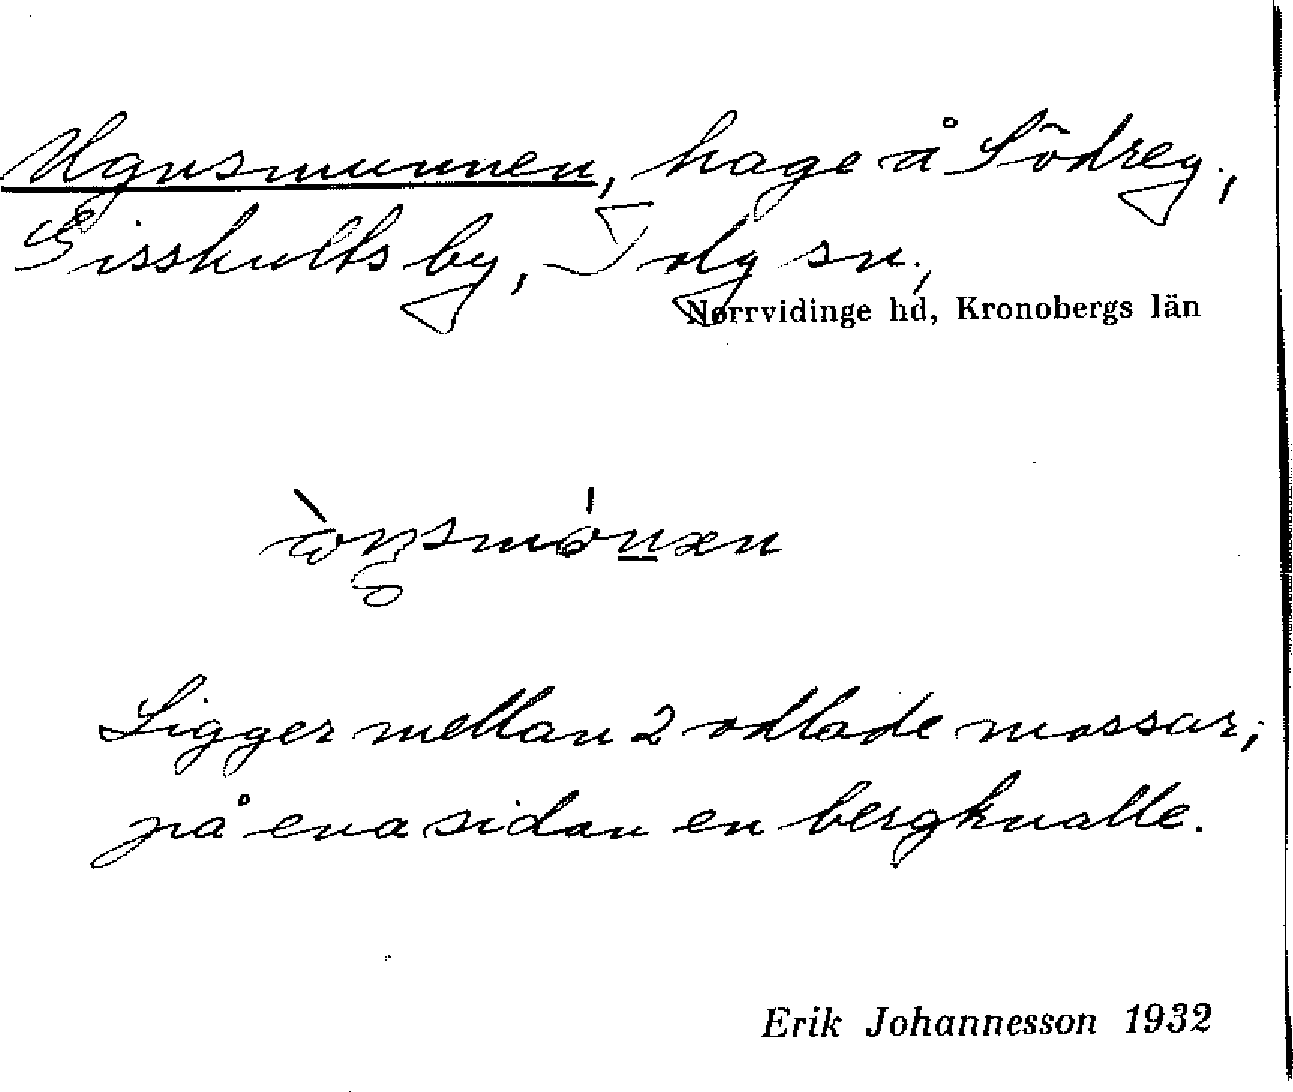 Ugnsmunnen, hage å Södreg.,
Gisskults by, Tolg sn.,
Norrvidinge hd, Kronobergs län
Ligger mellan 2 odlade mossar;
på ena sidan en bergknalle.
Erik Johannesson 1932